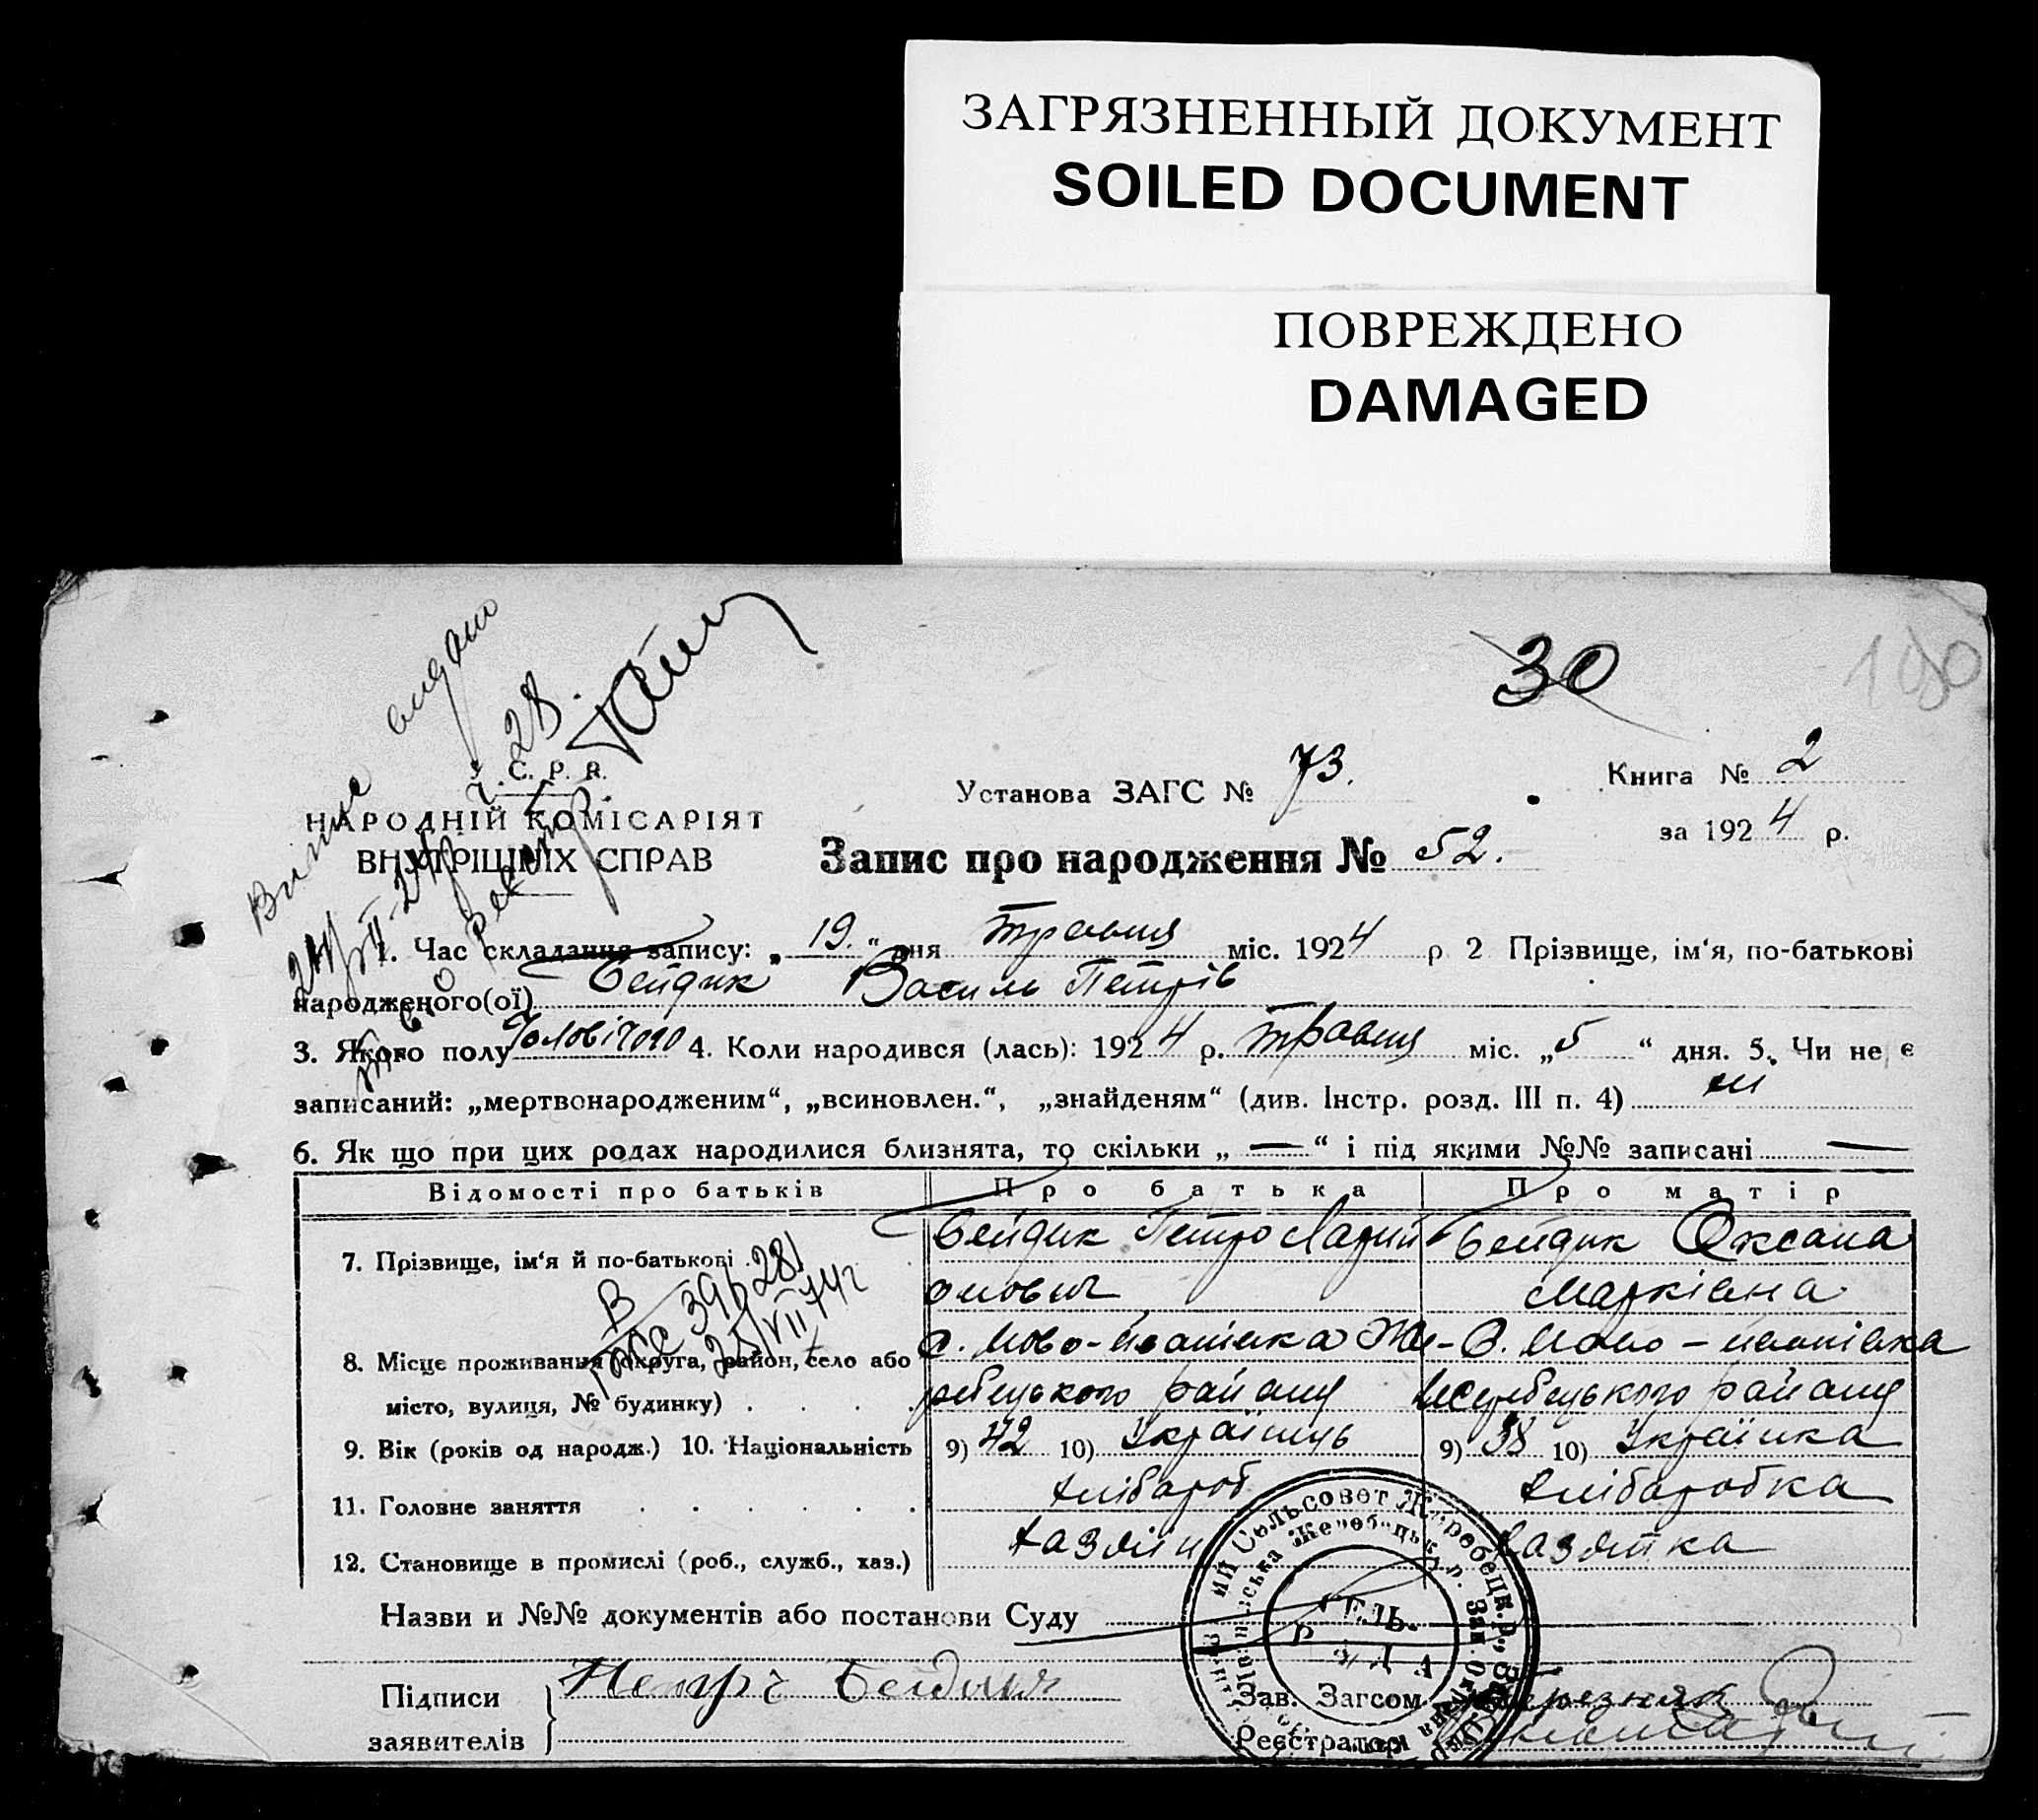 ЗАГРЯЗНЕННЫЙ ДОКУМЕНТ
SOILED DOCUMENT
ПОВРЕЖДЕНО
DAMAGED
30
180
видано
28.
С. Р. Р.
НАРОДНІЙ КОМІСАРІЯТ
ВНУТРІШНІХ СПРАВ
Установа ЗАГС № 73.
Книга № 2
за 1924 р.
Запис про народження № 52.
1. Час складання запису: „19.“ дня травня міс. 1924 р 2 Прізвище, ім'я, по-батькові
народженого(ої) Бейдик Василь Петрів
3. Якого полу чоловічого 4. Коли народився (лась): 1924 р. травня міс. „5“ дня. 5. Чи не є
записаний: „мертвонародженим“, „всиновлен.“, „знайденям“ (див. Інстр. розд. III п. 4) ні
6. Як що при цих родах народилися близнята, то скільки „—“ і під якими №№ записані —
Відомості про батьків Про батька Про матір
7. Прізвище, ім'я й по-батькові Бейдик Петро Ларии Бейдик Оксана
онович Марківна
8. Місце проживання (округа, район, село або с. Ново- Же- с. Ново-
місто, вулиця, № будинку) ребецького району Жеребецького району
9. Вік (років од народж.) 10. Національність 9) 42 10) Українець 9) 38 10) Українка
11. Головне заняття хлібороб хлібаробка
12. Становище в промислі (роб., служб., хаз.) хазяїн хазяйка
Назви и №№ документів або постанови Суду
Підписи Петро Бейдик Зав. Загсом Березняк
заявителів Реєстратор
Сельсовет Жеребецк. р.,
РАДА